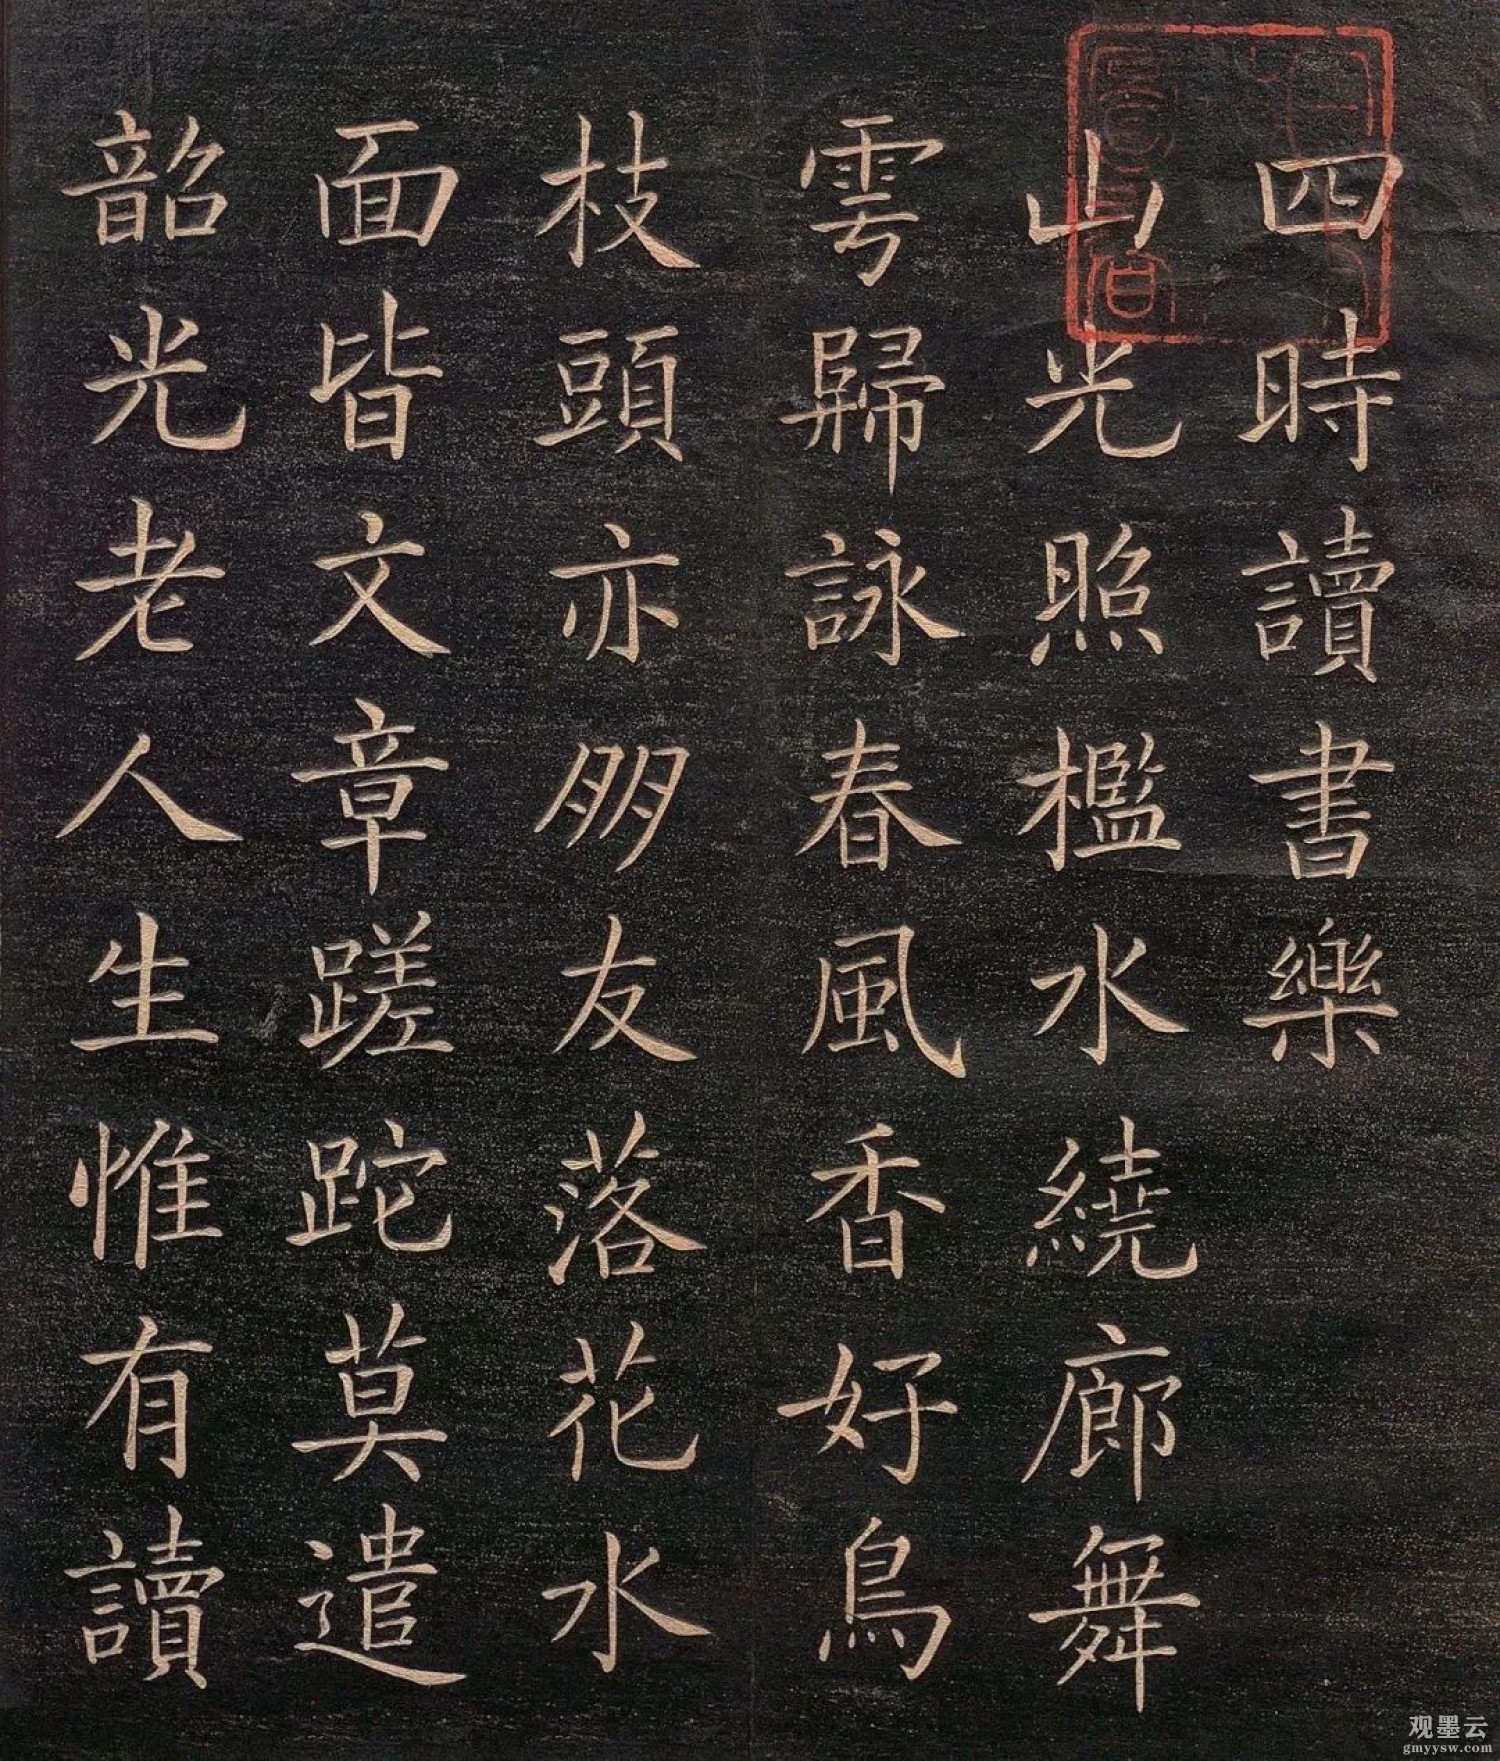 四時讀書樂
山光照檻水繞廊舞
雩歸詠春風香好鳥
枝頭亦朋友落花水
面皆文章蹉跎莫遣
韶光老人生惟有讀
观墨云
gmyysw.com